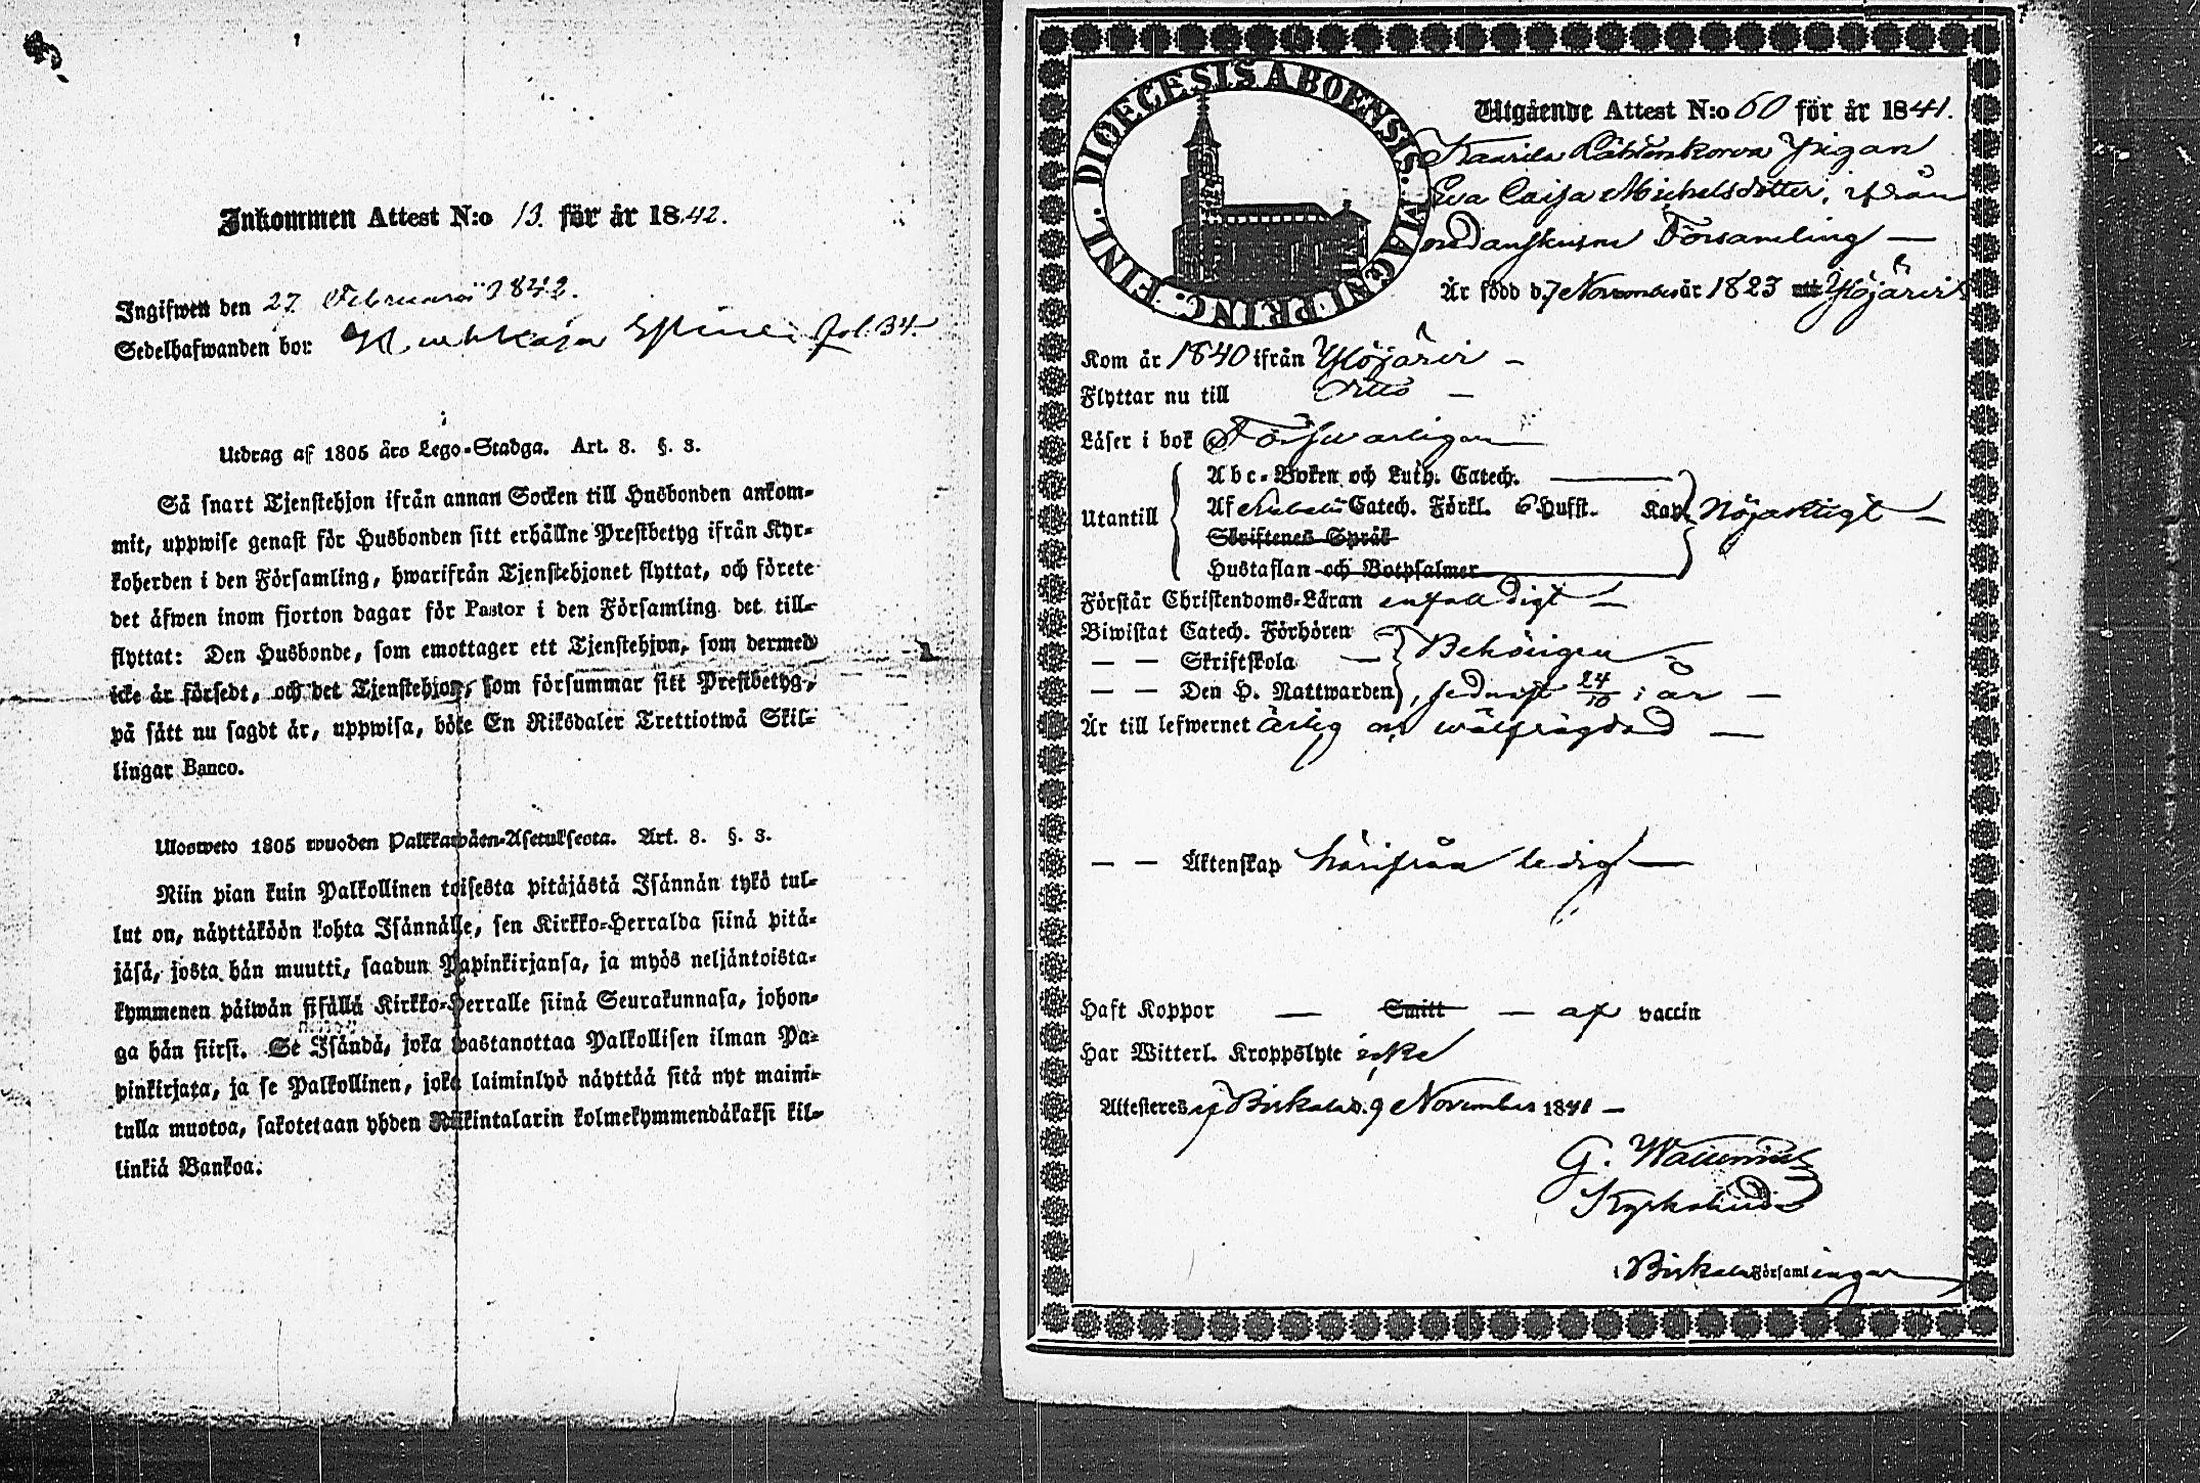 Inkommen Attest N:o 13. för år 1842.
Ingifwen den 27 Februarii 1842.
Sedelhafwanden bor: fol. 34.
Utdrag af 1805 års Lego-Stadga. Art. 8. §. 3.
Så snart Tjenstehjon ifrån annan Socken till Husbonden ankom-
mit, uppwise genast för Husbonden sitt erhållne Prestbetyg ifrån Kyr-
koherden i den Församling, hwarifrån Tjenstehjonet flyttat, och förete
det äfwen inom fjorton dagar för Pastor i den Församling det till-
flyttat: Den Husbonde, som emottager ett Tjenstehjon, som dermed
icke är försedt, och det Tjenstehjon, som försummar sitt Prestbetyg,
på sätt nu sagdt är, uppwisa, böte En Riksdaler Trettiotwå Skil-
lingar Banco.
Ulosweto 1805 wuoden Palkkawäen-Asetuksesta. Art. 8. §. 3.
Niin pian kuin Palkollinen toisesta pitäjästä Isännän tykö tul-
lut on, näyttäköön kohta Isännälle, sen Kirkko-Herralda siinä pitä-
jäsä, josta hän muutti, saadun Papinkirjansa, ja myös neljäntoista-
kymmenen päiwän sisällä Kirkko-Herralle siinä Seurakunnasa, johon-
ga hän siirsi. Se Isändä, joka wastanottaa Palkollisen ilman Pa-
pinkirjata, ja se Palkollinen, joka laiminlyö näyttää sitä nyt maini-
tulla muotoa, sakotetaan yhden Riikintalarin kolmekymmendäkaksi kil-
linkiä Bankoa.
FINL. DIOECESIS ABOENSIS. MAGNI PRINC.
Utgående Attest N:o 60 för år 1841.
Kaarila pigan
Eva Caisa Michelsdotter, ifrån
Församling —
Är född d. 7 November år 1823 Ylöjärvi
Kom år 1840 ifrån Ylöjärvi —
Flyttar nu till —
Läser i bok Försvarligen
Abc-Boken och Luth. Catech.
Utantill Af Catech. Förkl. 6 Hufst. Kap. Nöjaktigt —
Skriftenes Språk
Hustaflan och Botpsalmer
Förstår Christendoms-Läran enfaldigt —
Biwistat Catech. Förhören
— — Skriftskola — Behörigen
— — Den H. Nattwarden, sednast 24/10 i år —
Är till lefwernet ärlig och wälfrägdad —
— — Äktenskap härifrån ledig —
Haft Koppor — Smitt — af vaccin
Har Witterl. Kroppslyte icke
Attesteres i Birkala d. 9 November 1841 —
G.
Kyrkoherde
i Birkala Församlingar